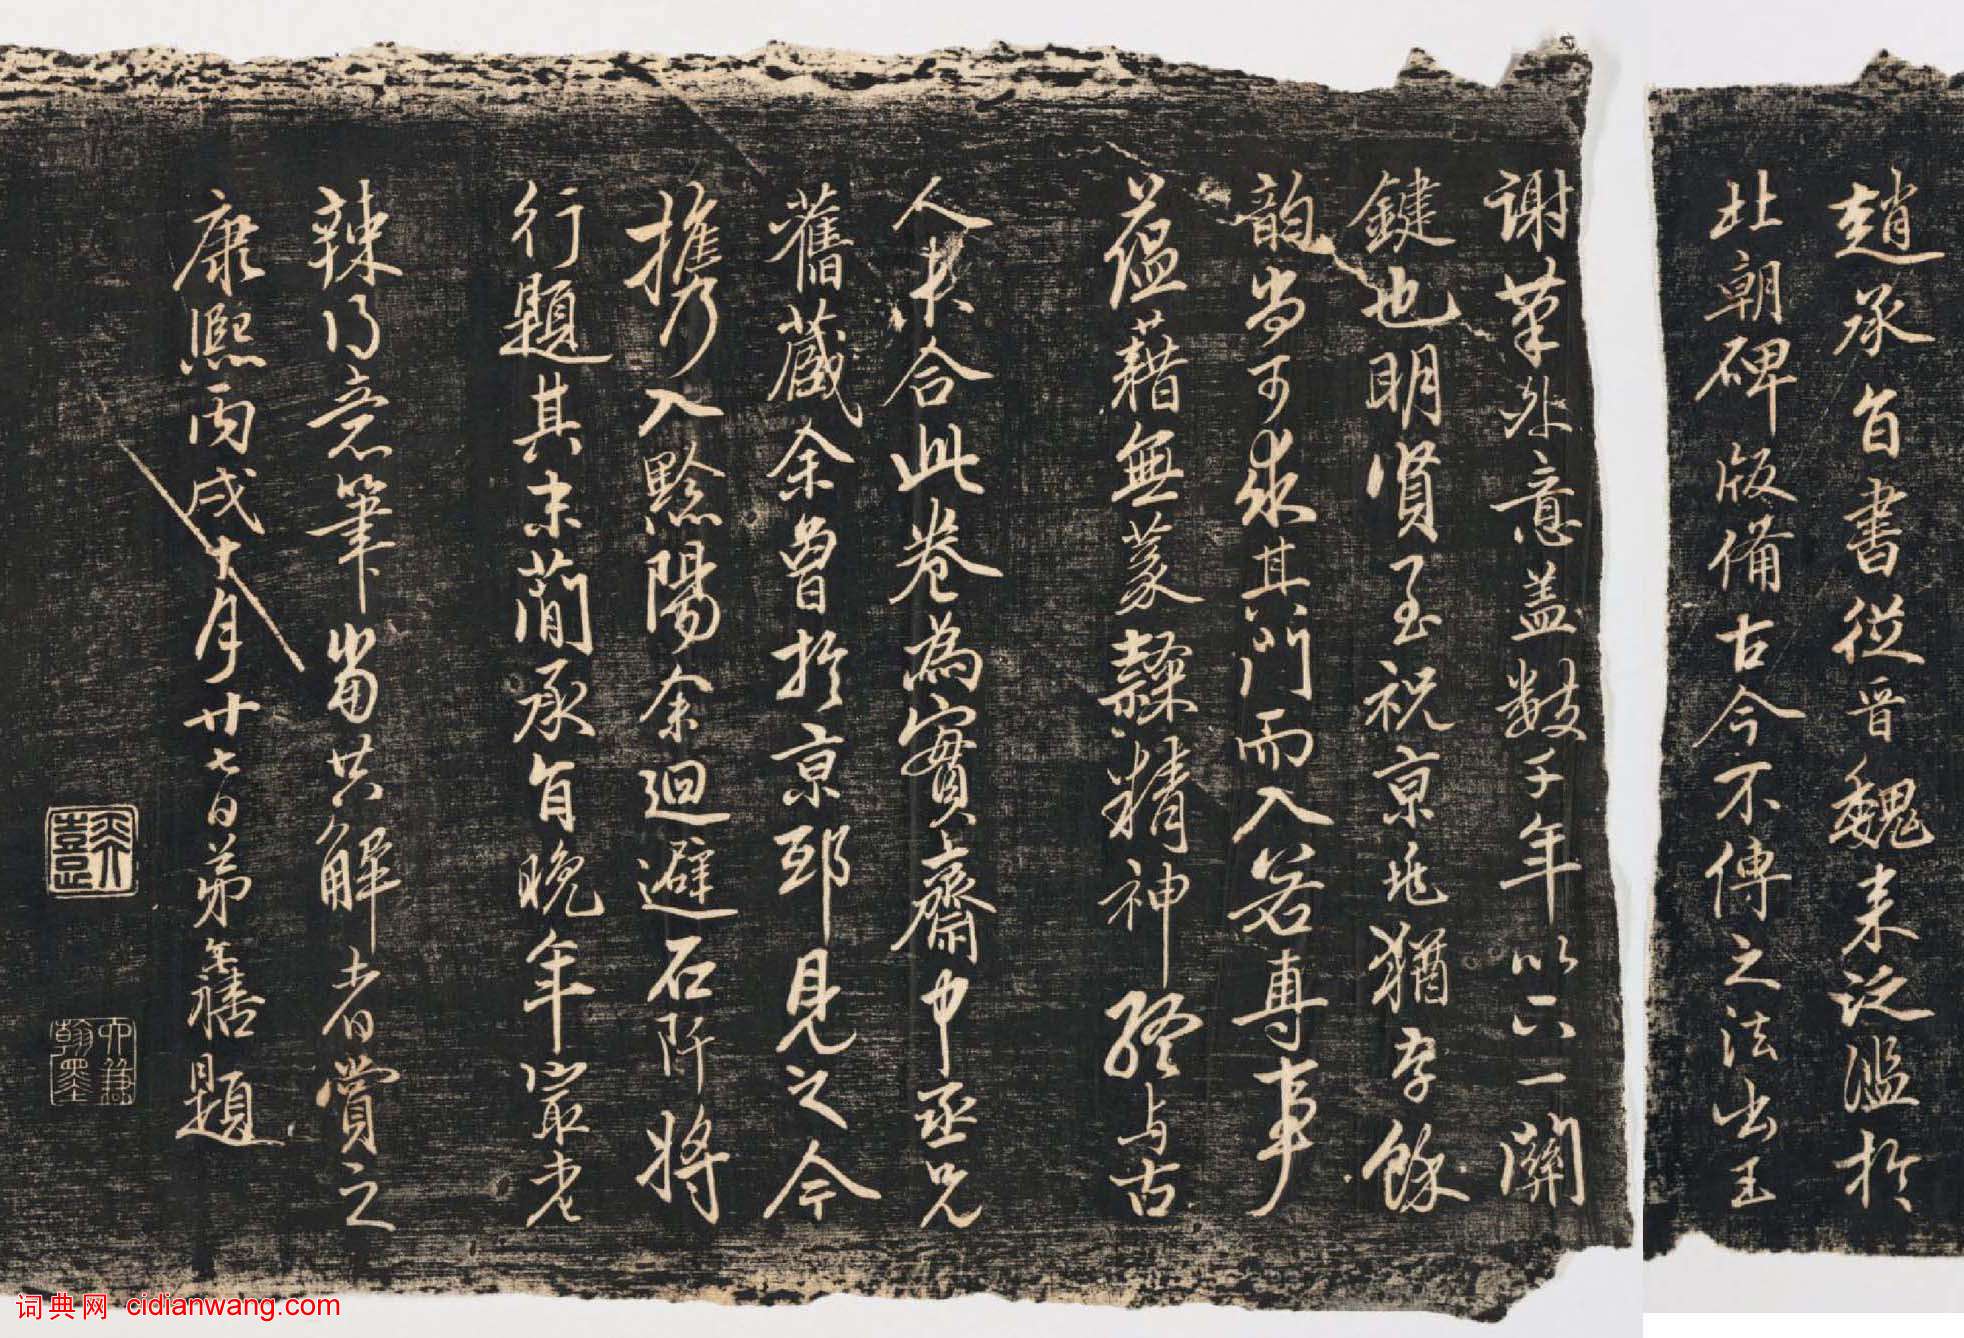 趙承旨書從晉魏来泛濫於
北朝碑版備古今不傳之法出王
謝筆外意盖數千年以六一關
鍵也明賢至祝京兆猶存餘
韵尚可求其門而入若專事
蕴藉無篆隸精神終与古
人未合此卷為實齋中丞兄
舊藏余曾於京邸見之今
攜入黔陽余迴避石阡將
行題其末簡承旨晚年最老
辣得意筆當共解者賞之
康熙丙戌十月廿七日弟無題
词典网 cidianwang.com